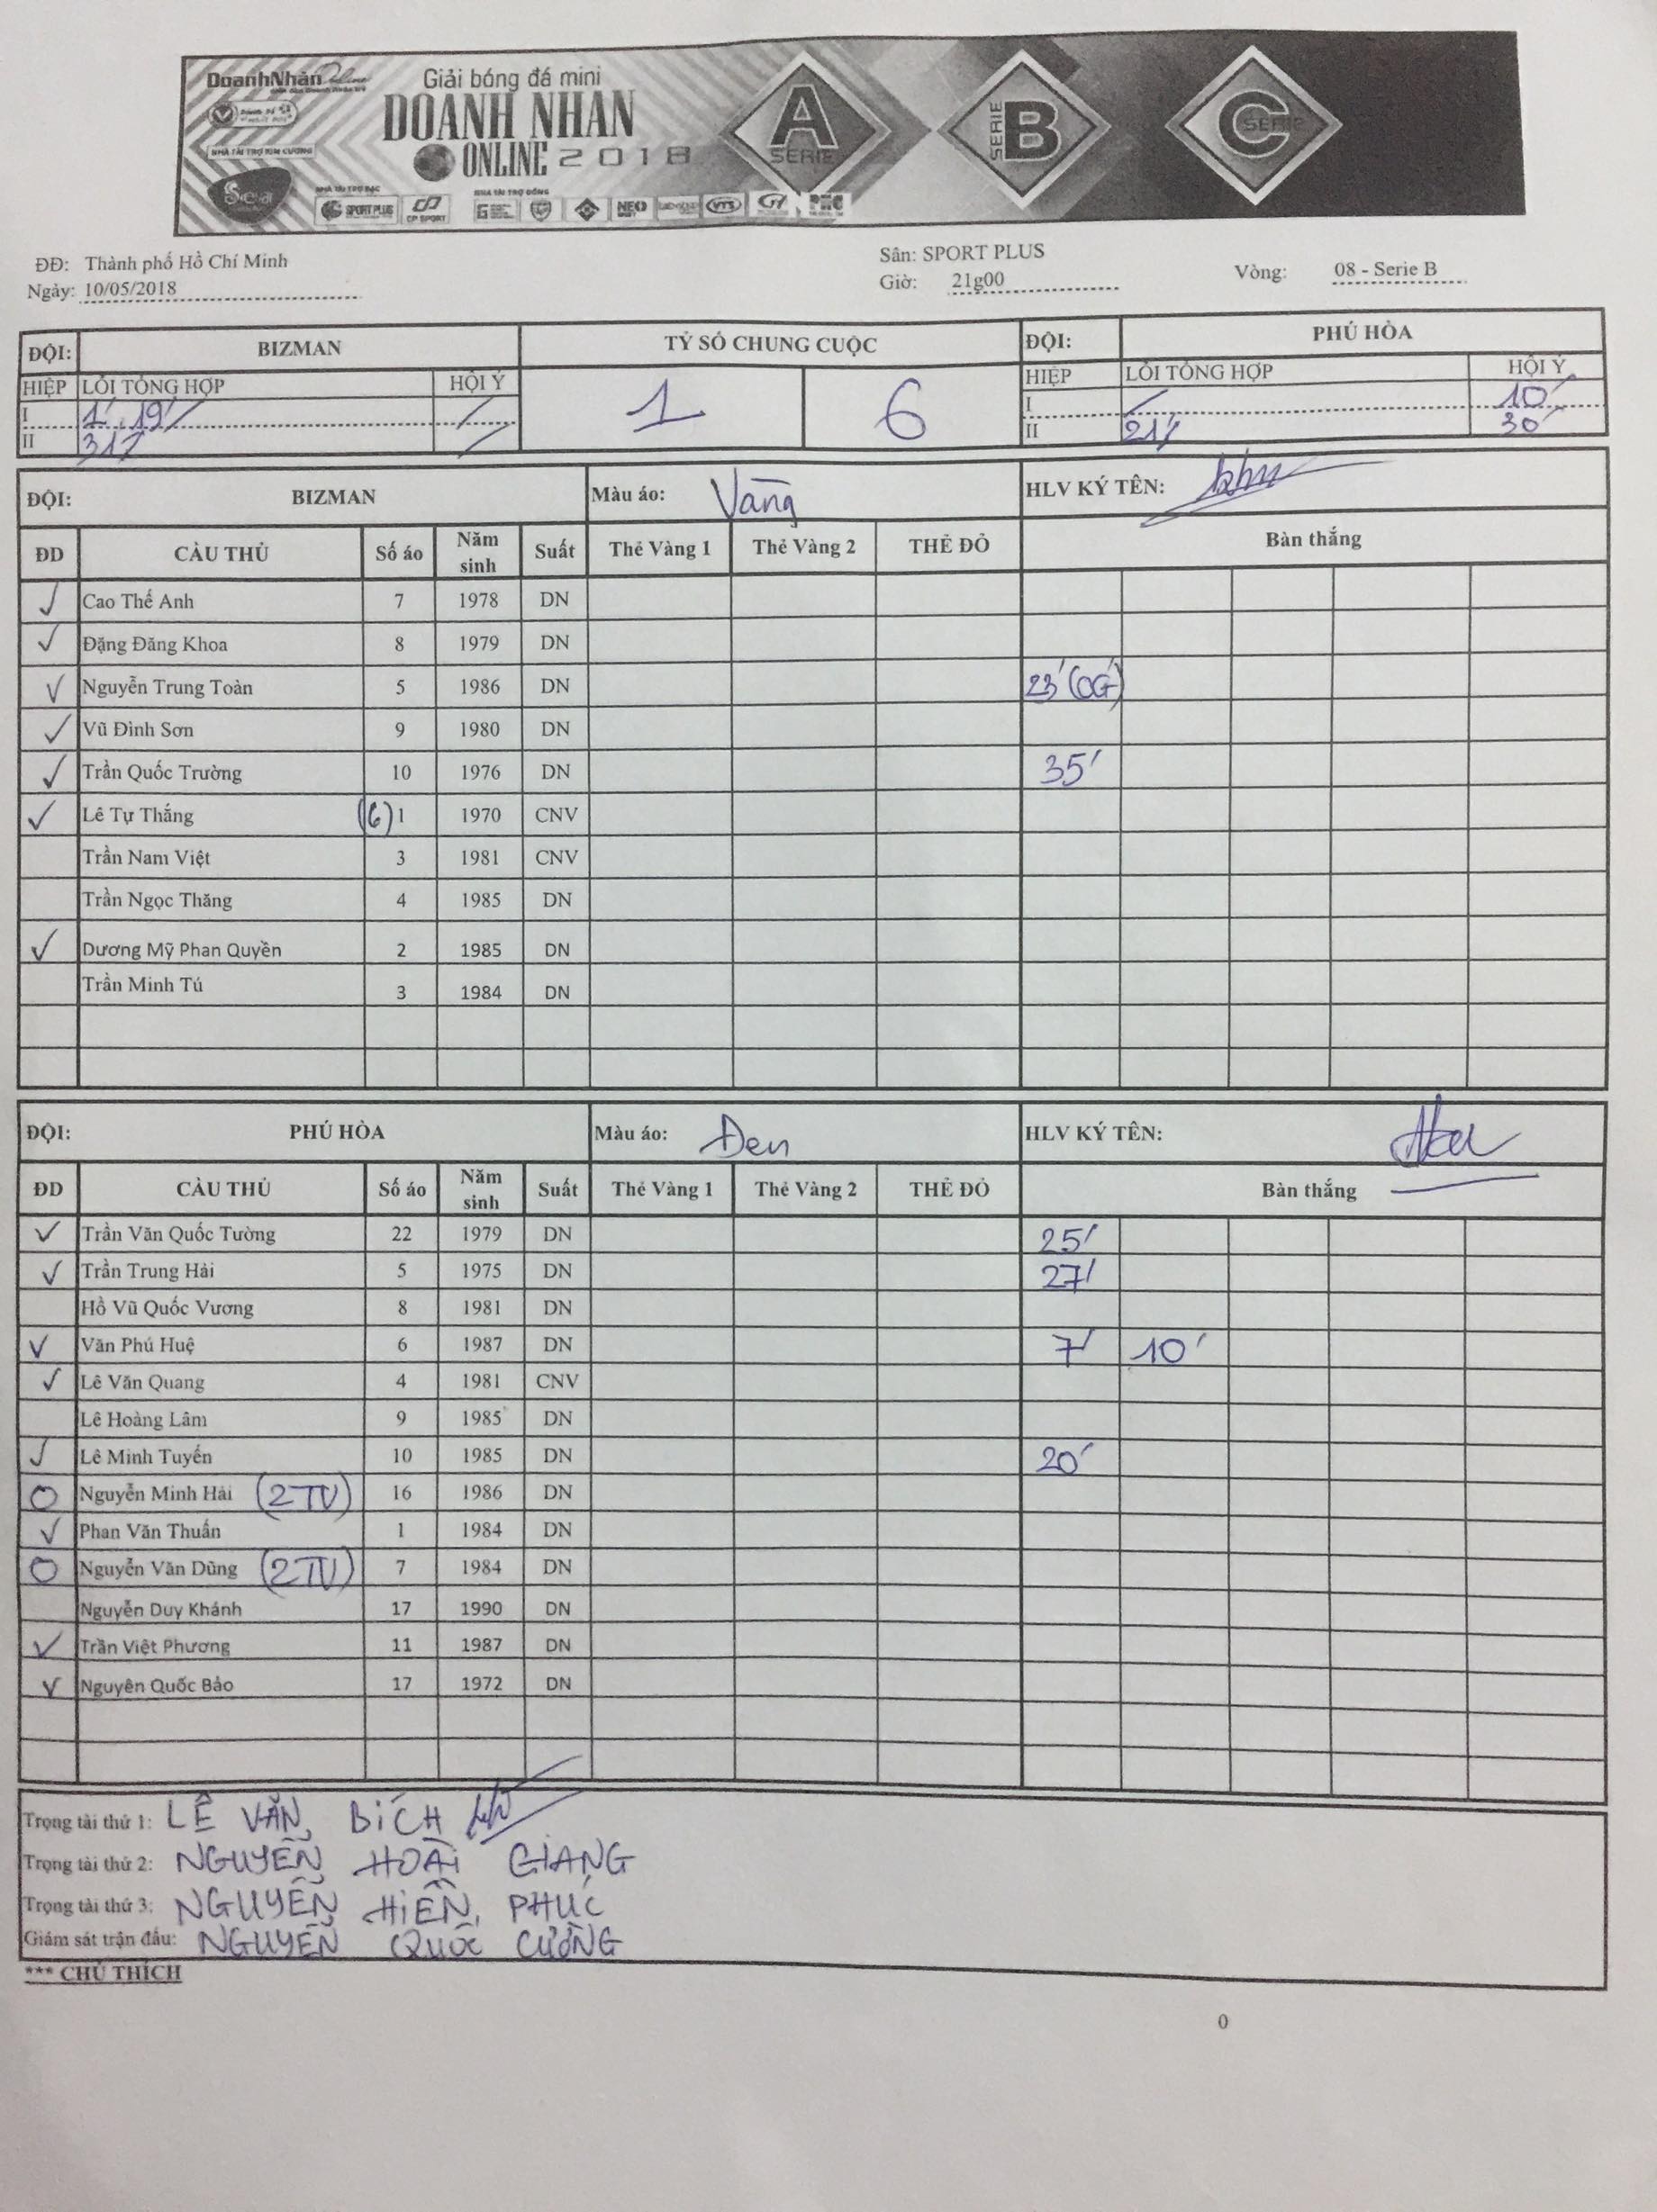 DoanhNhân Online
Giải bóng đá mini
DOANH NHAN
ONLINE 2018
A SERIE
SERIE B
C SERIE
NHÀ TÀI TRỢ KIM CƯƠNG
Sea
NHÀ TÀI TRỢ BẠC
NHÀ TÀI TRỢ ĐỒNG
SPORT PLUS CP SPORT NEO VTS
ĐĐ: Thành phố Hồ Chí Minh Sân: SPORT PLUS
Ngày: 10/05/2018 Giờ: 21g00 Vòng: 08 - Serie B
ĐỘI: BIZMAN TỶ SỐ CHUNG CUỘC ĐỘI: PHÚ HÒA
HIỆP LỖI TỔNG HỢP HỘI Ý 1 6 HIỆP LỖI TỔNG HỢP HỘI Ý
I 1', 19' / I / 10'
II 31' / II 21' 30'
ĐỘI: BIZMAN Màu áo: Vàng HLV KÝ TÊN:
ĐD CẦU THỦ Số áo Năm sinh Suất Thẻ Vàng 1 Thẻ Vàng 2 THẺ ĐỎ Bàn thắng
✓ Cao Thế Anh 7 1978 DN
✓ Đặng Đăng Khoa 8 1979 DN
✓ Nguyễn Trung Toàn 5 1986 DN 23' (OG)
✓ Vũ Đình Sơn 9 1980 DN
✓ Trần Quốc Trường 10 1976 DN 35'
✓ Lê Tự Thắng (6) 1 1970 CNV
Trần Nam Việt 3 1981 CNV
Trần Ngọc Thăng 4 1985 DN
✓ Dương Mỹ Phan Quyền 2 1985 DN
Trần Minh Tú 3 1984 DN
ĐỘI: PHÚ HÒA Màu áo: Đen HLV KÝ TÊN:
ĐD CẦU THỦ Số áo Năm sinh Suất Thẻ Vàng 1 Thẻ Vàng 2 THẺ ĐỎ Bàn thắng
✓ Trần Văn Quốc Tường 22 1979 DN 25'
✓ Trần Trung Hải 5 1975 DN 27'
Hồ Vũ Quốc Vương 8 1981 DN
✓ Văn Phú Huệ 6 1987 DN 7' 10'
✓ Lê Văn Quang 4 1981 CNV
Lê Hoàng Lâm 9 1985 DN
✓ Lê Minh Tuyến 10 1985 DN 20'
O Nguyễn Minh Hải (2TV) 16 1986 DN
✓ Phan Văn Thuấn 1 1984 DN
O Nguyễn Văn Dũng (2TV) 7 1984 DN
Nguyễn Duy Khánh 17 1990 DN
✓ Trần Việt Phương 11 1987 DN
✓ Nguyên Quốc Bảo 17 1972 DN
Trọng tài thứ 1: LÊ VĂN BÍCH
Trọng tài thứ 2: NGUYỄN HOÀI GIANG
Trọng tài thứ 3: NGUYỄN HIỀN PHÚC
Giám sát trận đấu: NGUYỄN QUỐC CƯỜNG
*** CHÚ THÍCH
0